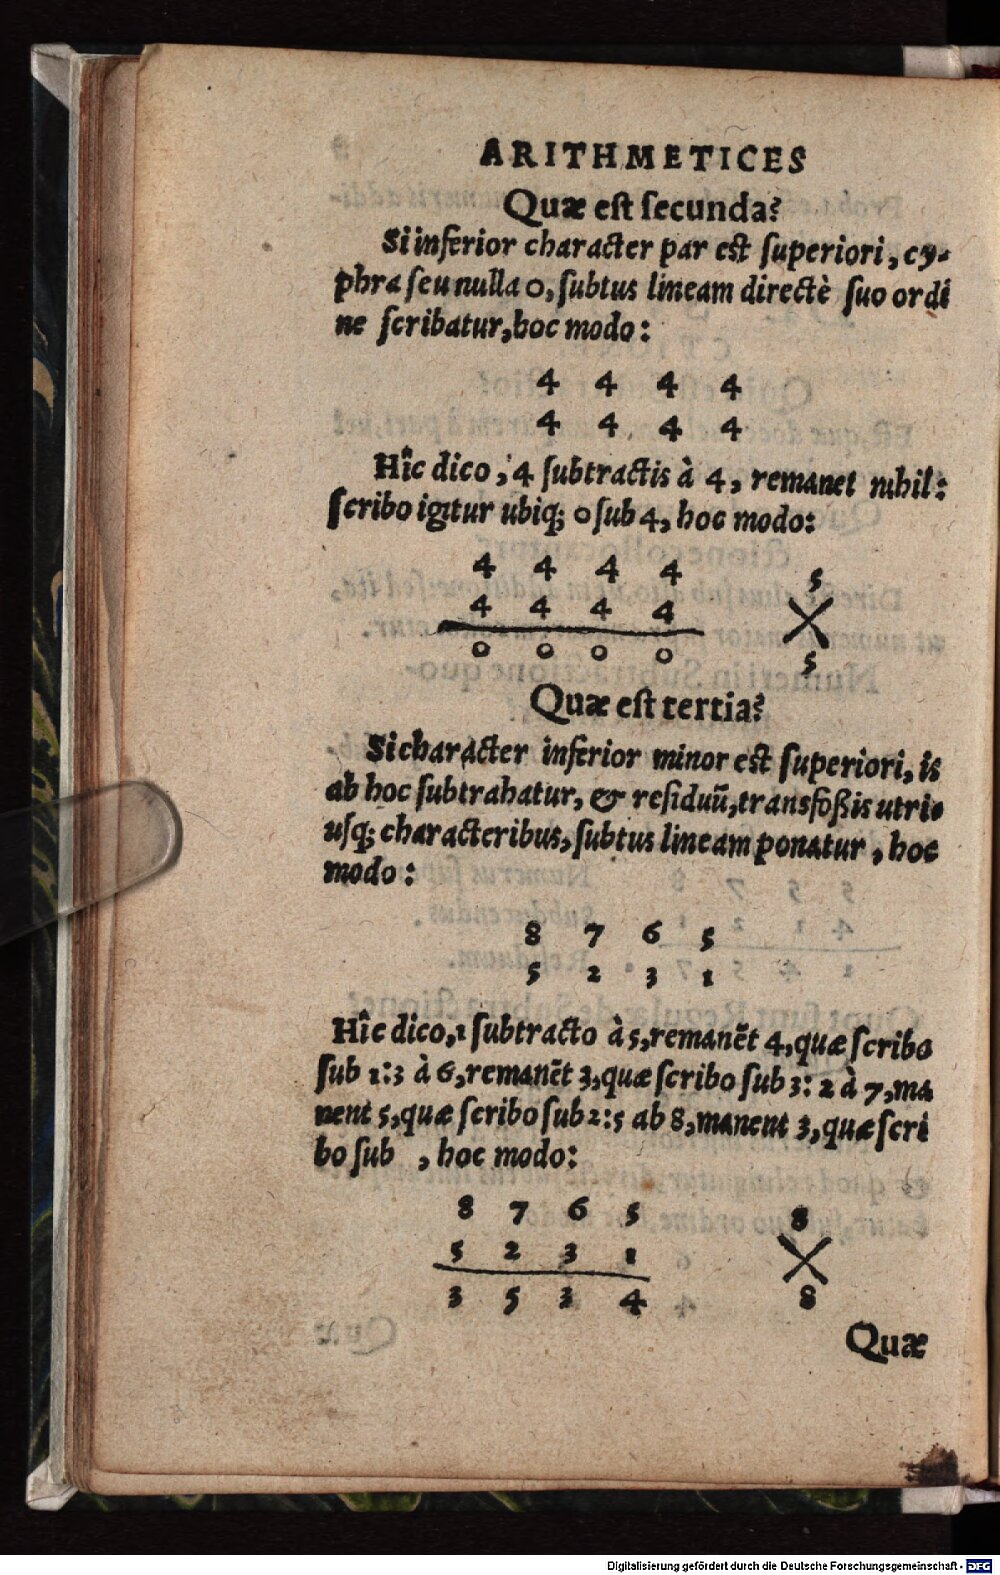 ARITHMETICES
Quæ est secunda?
Si inferior character par est superiori, cy-
phra seu nulla 0, subtus lineam directè suo ordi
ne scribatur, hoc modo:
4 4 4 4
4 4 4 4
Hîc dico, 4 subtractis à 4, remanet nihil:
scribo igitur ubiq; 0 sub 4, hoc modo:
4 4 4 4 5
4 4 4 4 X
0 0 0 0 5
Quæ est tertia?
Si character inferior minor est superiori, is
ab hoc subtrahatur, & residuū, transfoßis utri
usq; characteribus, subtus lineam ponatur, hoc
modo:
8 7 6 5
5 2 3 1
Hîc dico, 1 subtracto à 5, remanēt 4, quæ scribo
sub 1: 3 à 6, remanēt 3, quæ scribo sub 3: 2 à 7, ma
nent 5, quæ scribo sub 2: 5 ab 8, manent 3, quæ scri
bo sub , hoc modo:
8 7 6 5 8
5 2 3 1 X
3 5 3 4 8
Quæ
Digitalisierung gefördert durch die Deutsche Forschungsgemeinschaft - DFG